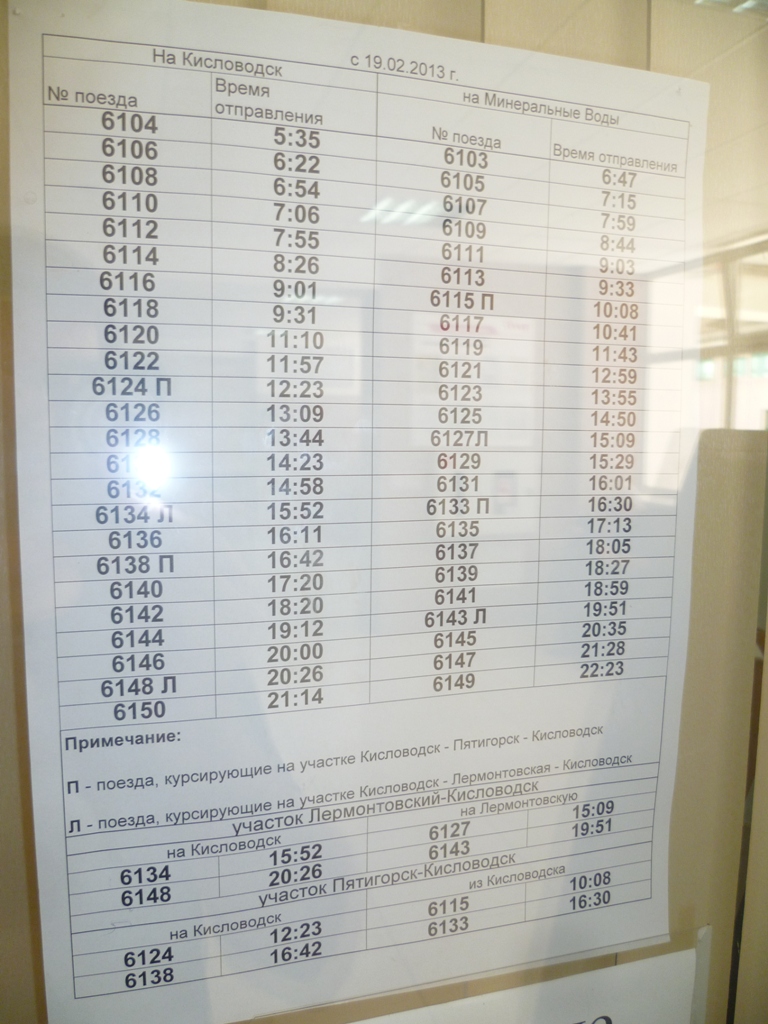 с 19.02.2013 г.
На Кисловодск на Минеральные Воды
№ поезда Время отправления № поезда Время отправления
6104 5:35 6103 6:47
6106 6:22 6105 7:15
6108 6:54 6107 7:59
6110 7:06 6109 8:44
6112 7:55 6111 9:03
6114 8:26 6113 9:33
6116 9:01 6115 П 10:08
6118 9:31 6117 10:41
6120 11:10 6119 11:43
6122 11:57 6121 12:59
6124 П 12:23 6123 13:55
6126 13:09 6125 14:50
6128 13:44 6127Л 15:09
14:23 6129 15:29
6132 14:58 6131 16:01
6134 Л 15:52 6133 П 16:30
6136 16:11 6135 17:13
6138 П 16:42 6137 18:05
6140 17:20 6139 18:27
6142 18:20 6141 18:59
6144 19:12 6143 Л 19:51
6146 20:00 6145 20:35
6148 Л 20:26 6147 21:28
6150 21:14 6149 22:23
Примечание:
П - поезда, курсирующие на участке Кисловодск - Пятигорск - Кисловодск
Л - поезда, курсирующие на участке Кисловодск - Лермонтовская - Кисловодск
участок Лермонтовский-Кисловодск
на Кисловодск на Лермонтовскую
6134 15:52 6127 15:09
6148 20:26 6143 19:51
участок Пятигорск-Кисловодск
на Кисловодск из Кисловодска
6124 12:23 6115 10:08
6138 16:42 6133 16:30